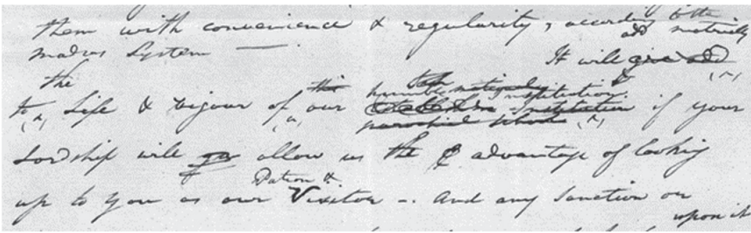 them with convenience & regularity, according to the
madras System —. It will give add materially
to the Life & vigour of our humble institution if your
Lordship will allow us the advantage of looking
up to you as our Patron & Visitor -. And any Sanction or
upon it